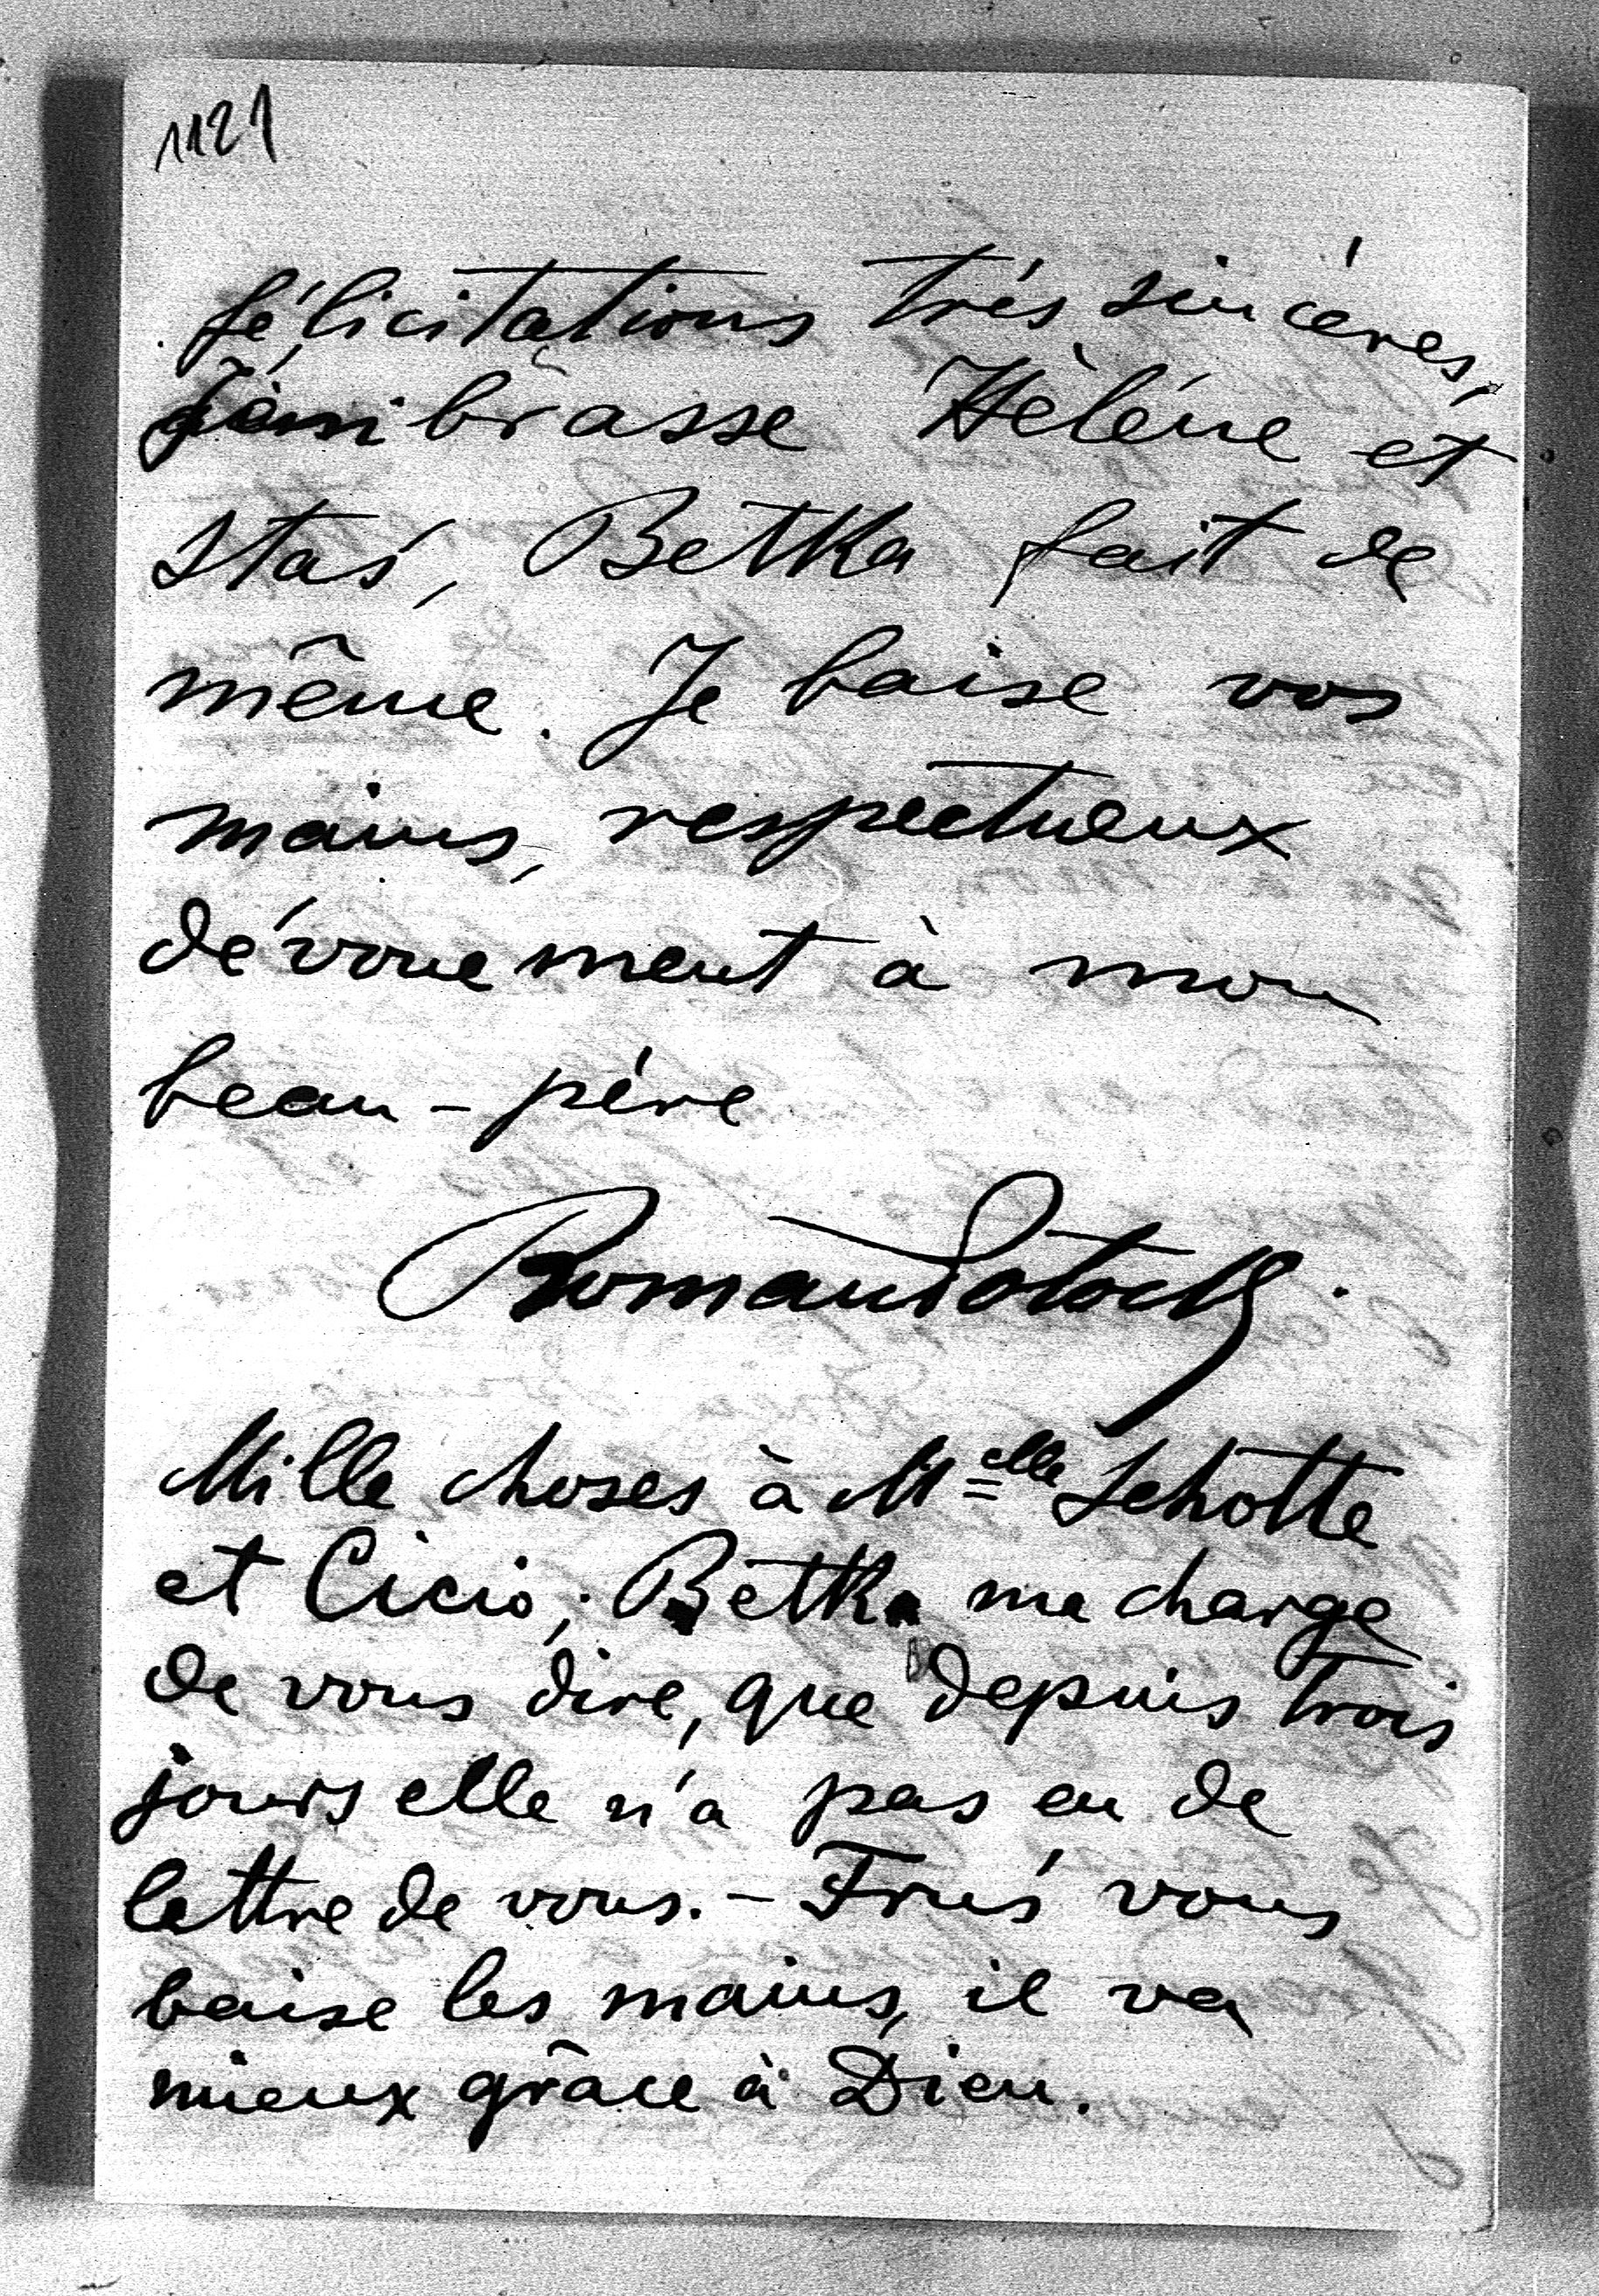 1121
félicitations très sincères,
j'embrasse Hélène et
Staś, Betka fait de
même. Je baise vos
mains, respectueux
dévouement à mon
beau-père
Roman Potocki.
Mille choses à Melle Schotte
et Cicio; Betka me charge
de vous dire, que depuis trois
jours elle n'a pas eu de
lettre de vous. - Fruś vous
baise les mains, il va
mieux grâce à Dieu.